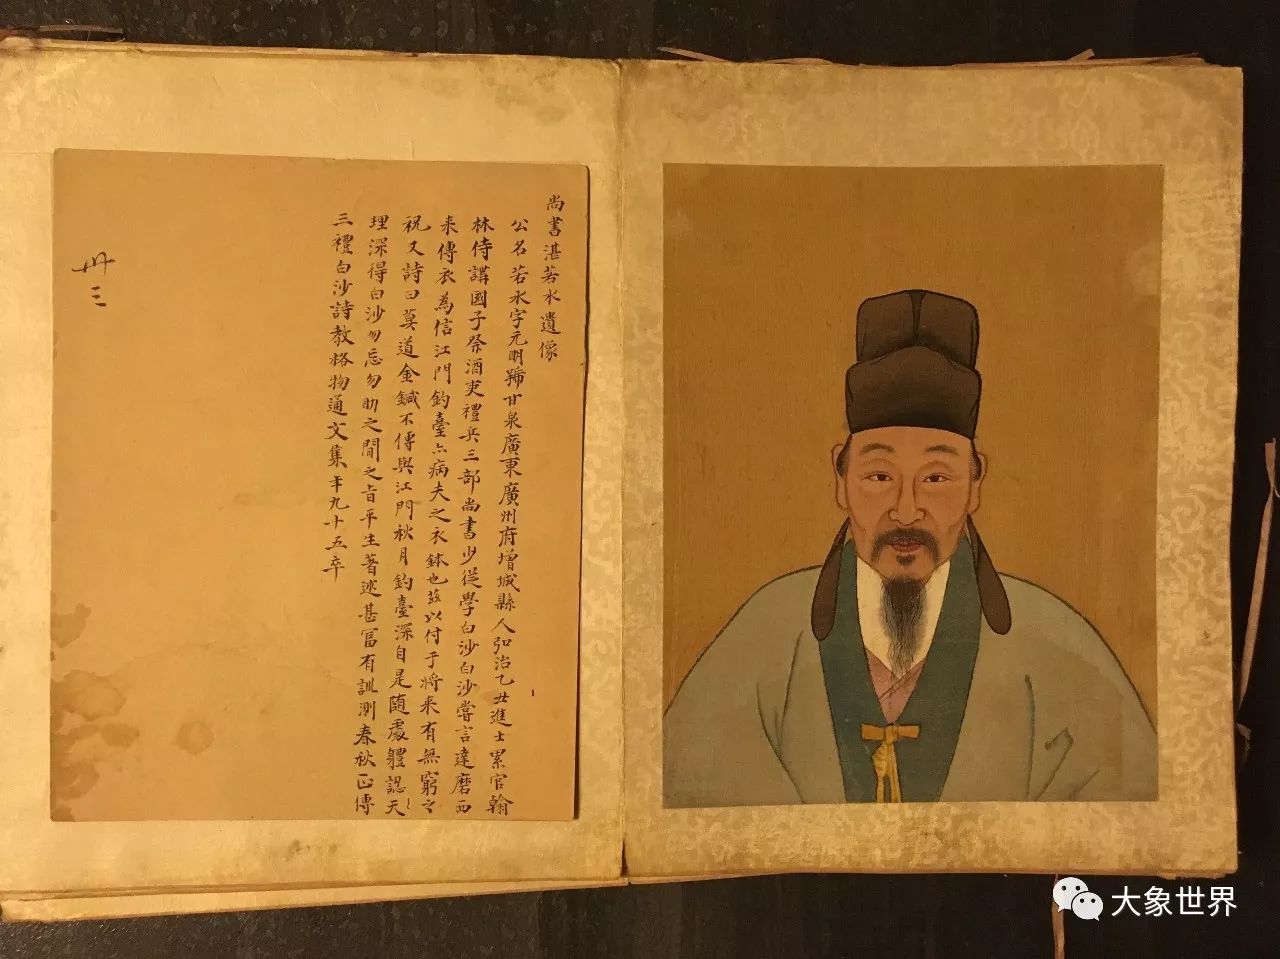 尚書湛若水遺像
公名若水字元明號甘泉廣東廣州府增城縣人弘治乙丑進士累官翰
林侍講國子祭酒吏禮兵三部尚書少從學白沙白沙嘗言達磨西
来傳衣為信江門釣臺亦病夫之衣鉢也茲以付于将来有無窮之
祝又詩曰莫道金鍼不傳與江門秋月釣臺深自是随處軆認天
理深得白沙勿忘勿助之間之旨平生著述甚冨有訓測春秋正傳
三禮白沙詩教格物通文集年九十五卒
卅三
大象世界